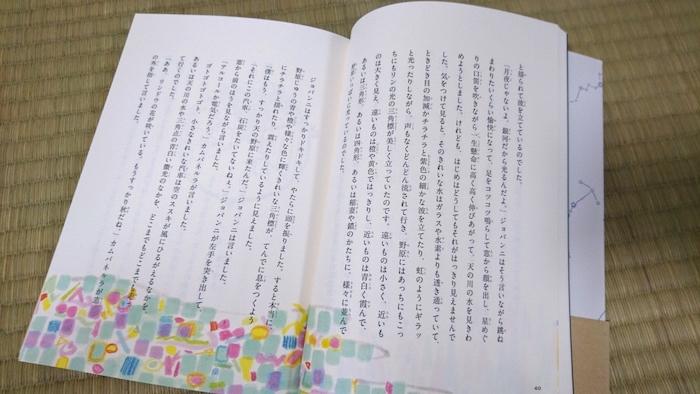 と揺られて波を立てているのでした。
「月夜でないよ。銀河だから光るんだよ。」ジョバンニはそう言いながら、跳ね
まわりたいくらい愉快になって、足をコツコツ鳴らして窓から顔を出し、星めぐ
りの口笛を吹きながら一生懸命に高く高く伸びあがって、天の川の水を見きわ
めようとしました。けれども、はじめはどうしてもそれがはっきり見えませんで
した。気をつけて見ると、そのきれいな水はガラスや水素よりも透き通っていて、
ときどき目の加減かチラチラと紫色の細かな波を立てたり、虹のようにギラッ
と光ったりしながら、声もなくどんどん流されて行き、野原にはあっちにもこっ
ちにもリンの光の三角標が美しく立っていたのです。遠いものは小さく、近いも
のは大きく見え、遠いものは橙や黄色ではっきりし、近いものは青白く霞んで、
あるいは三角形、あるいは四角形、あるいは稲妻や鎖のかたちに、様々に並んで
ジョバンニはすっかりドキドキして、やたらに頭を振りました。すると本当に、
野原じゅうの青や橙や様々な色に輝くきれいな三角標が、てんでに息をつくよう
にチラチラと揺れたり、震えたりしているように見えました。
「僕はもう、すっかり天の野原に来たんだ。」ジョバンニは言いました。
「それにこの汽車、石炭をたいてないねえ。」ジョバンニが左手を突き出して、
窓から前のほうを見ながら言いました。
「アルコールか電気だろう。」カムパネルラが言いました。
ゴトゴトゴトゴト、小さなきれいな汽車は空のススキが風にひるがえるなかを、
あるいは天の川の水や三角点の青白い微光のなかを、どこまでもどこまでも
て行くのでした。
「ああ、リンドウの花が咲いている。もうすっかり秋だね。」カムパネルラが
の外を指して言いました。
40